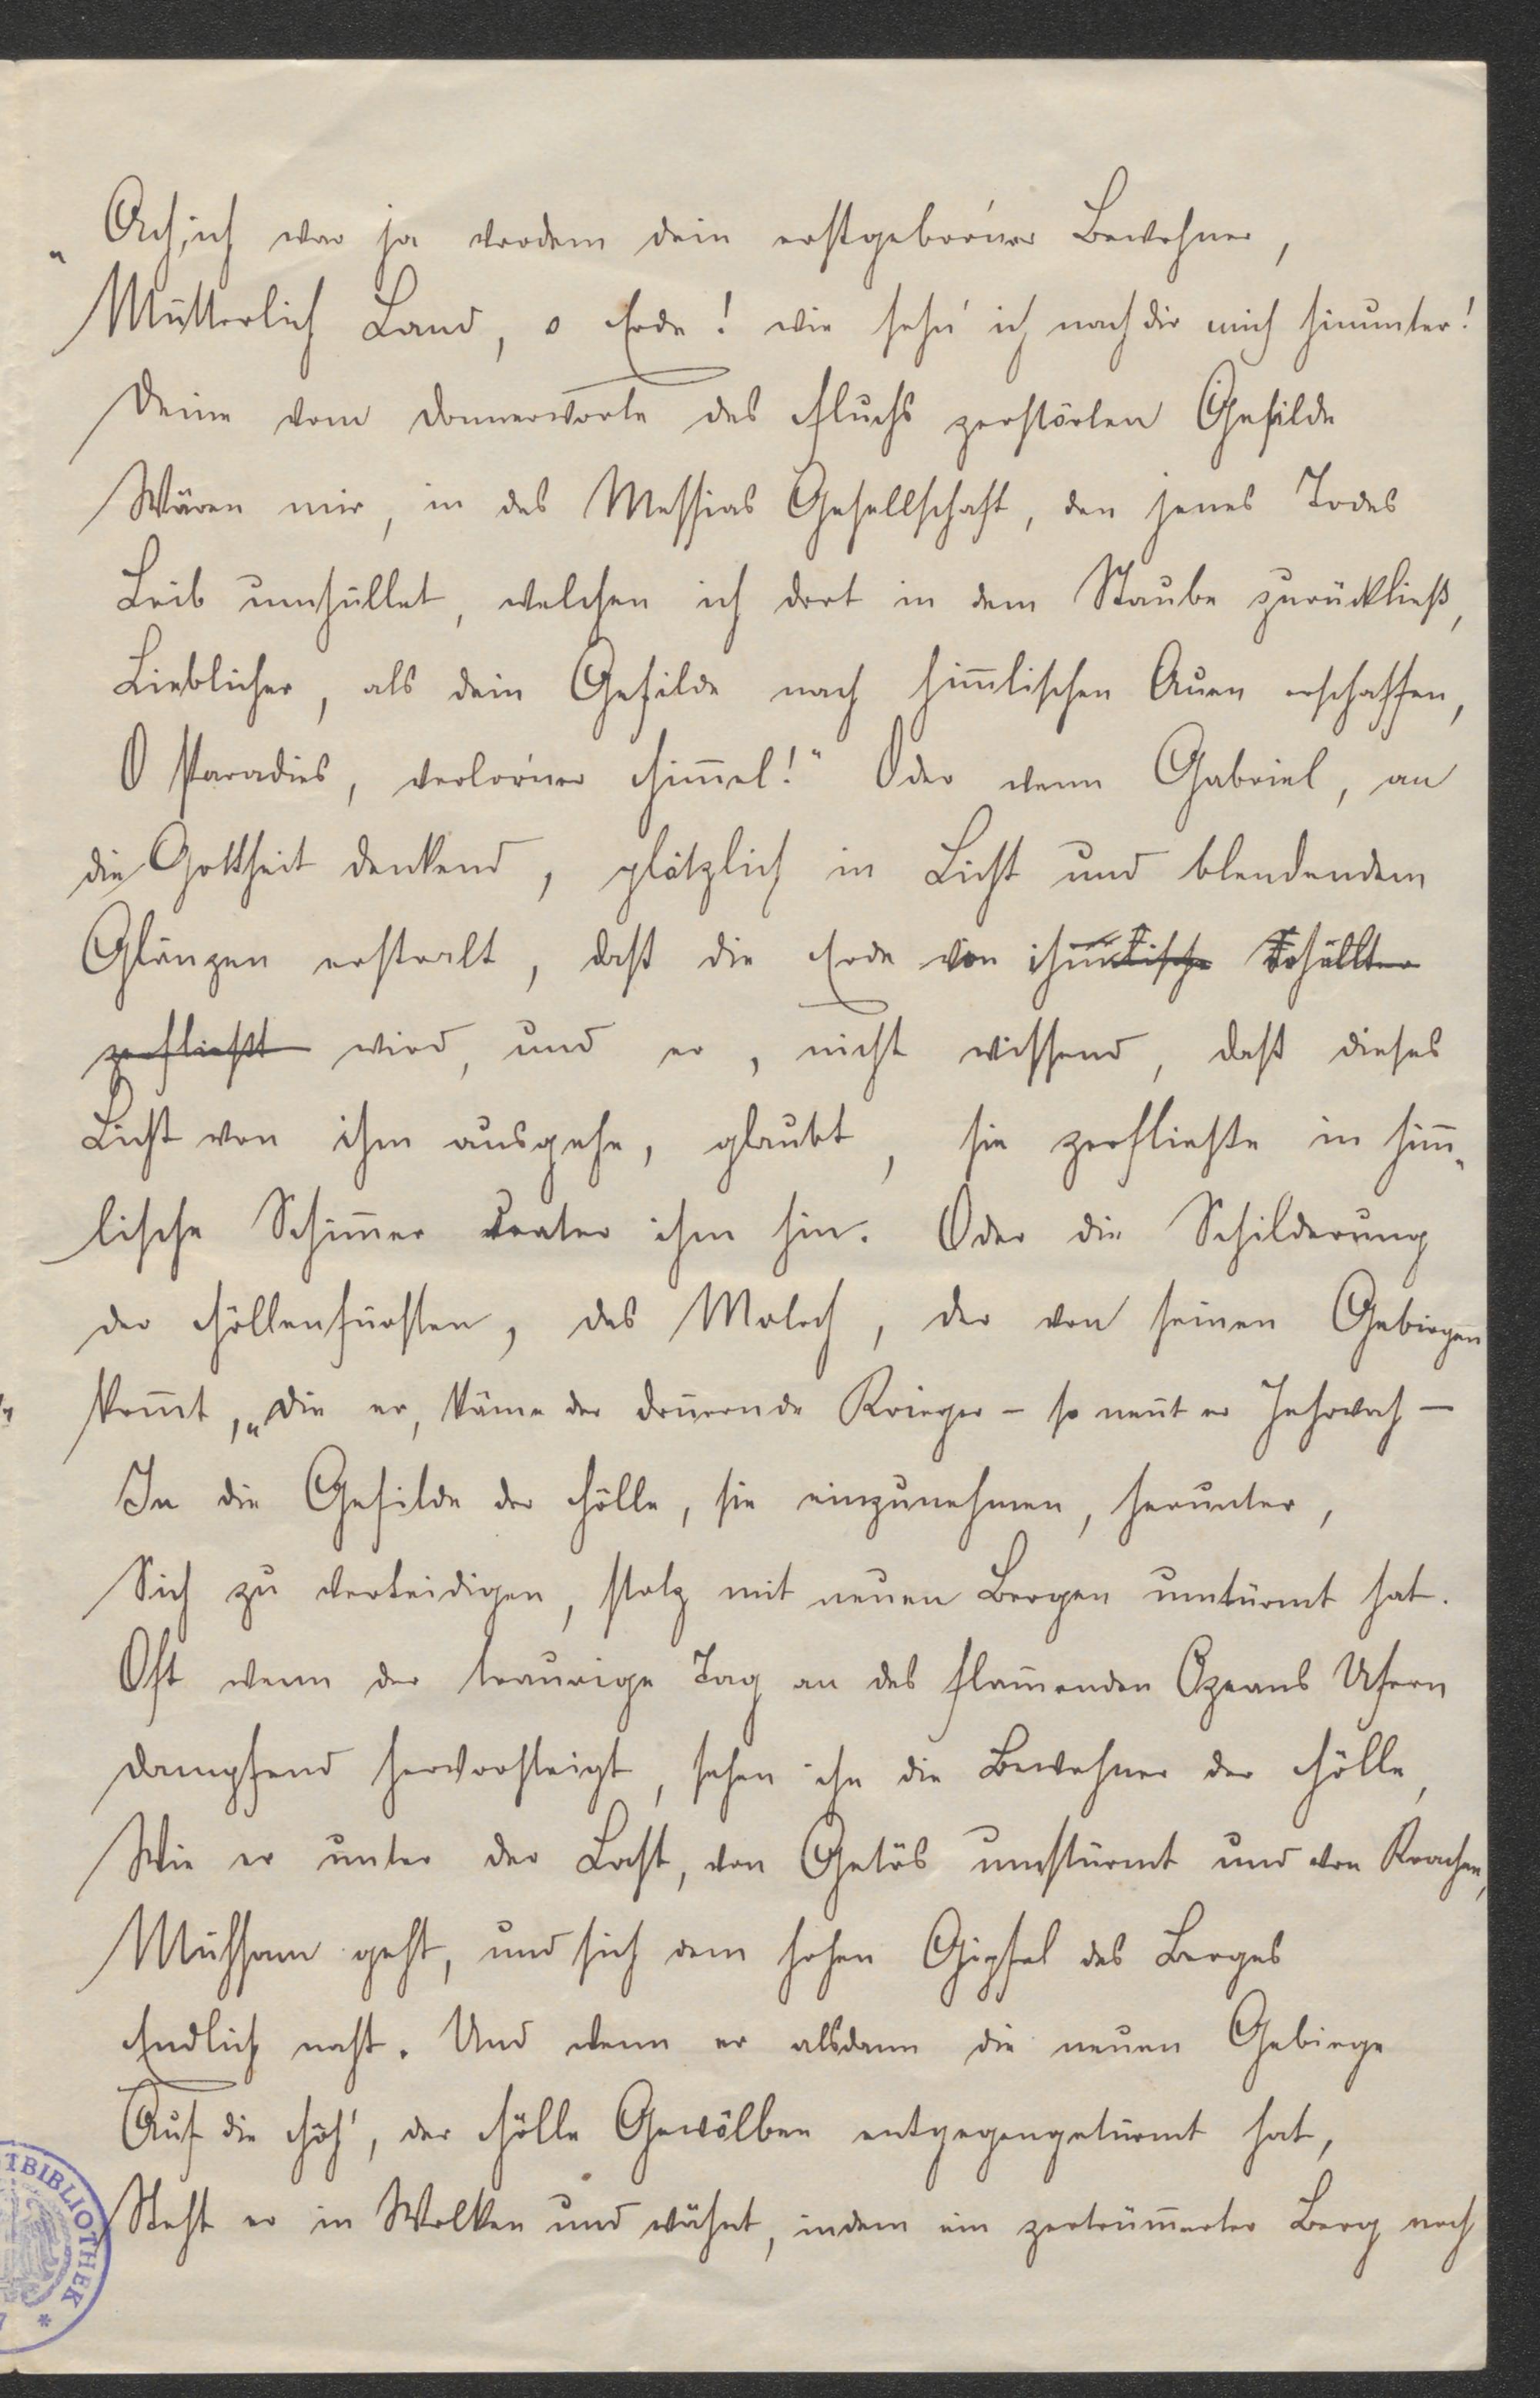 „Ach, ich war ja vordem dein erstgebor'ner Bewohner,
Mütterlich Land, o Erde! wie sehn' ich nach dir mich hinunter!
Deine vom Donnerworte des Fluchs zerstörten Gefilde
Wären mir, in des Messias Gesellschaft, den jenes Todes
Leib umhüllet, welchen ich dort in dem Staube zurückließ,
Lieblicher, als dein Gefilde nach him̄lischen Auen erschaffen,
O Paradies, verlor'ner Him̄el!“ Oder wenn Gabriel, an
die Gottheit denkend, plötzlich in Licht und blendendem
Glänzen erstralt, daß die Erde von
zerfließt wird, und er, nicht wissend, daß dieses
Licht von ihm ausgehe, glaubt, sie zerfließe in him̄-
lische Schim̄er unter ihm hin. Oder die Schilderung
der Höllenfürsten, des Moloch, der von seinen Gebirgen
kom̄t, „die er, käme der don̄ernde Krieger – so nen̄t er Jehovah –
In die Gefilde der Hölle, sie einzunehmen, herunter,
Sich zu verteidigen, stolz mit neuen Bergen umtürmt hat.
Oft wenn der traurige Tag an des flam̄enden Ozeans Ufern
dampfend hervorsteigt, sehen ihn die Bewohner der Hölle,
Wie er unter der Last, von Getös umstürmt und von Krachen,
Mühsam geht, und sich dem hohen Gipfel des Berges
Endlich naht. Und wenn er alsdann die neuen Gebirge
Auf die Höh', der Hölle Gewölben entgegengetürmt hat,
Steht er in Wolken und wähnt, indem ein zertrüm̄erter Berg noch
TBIBLIOTHEK